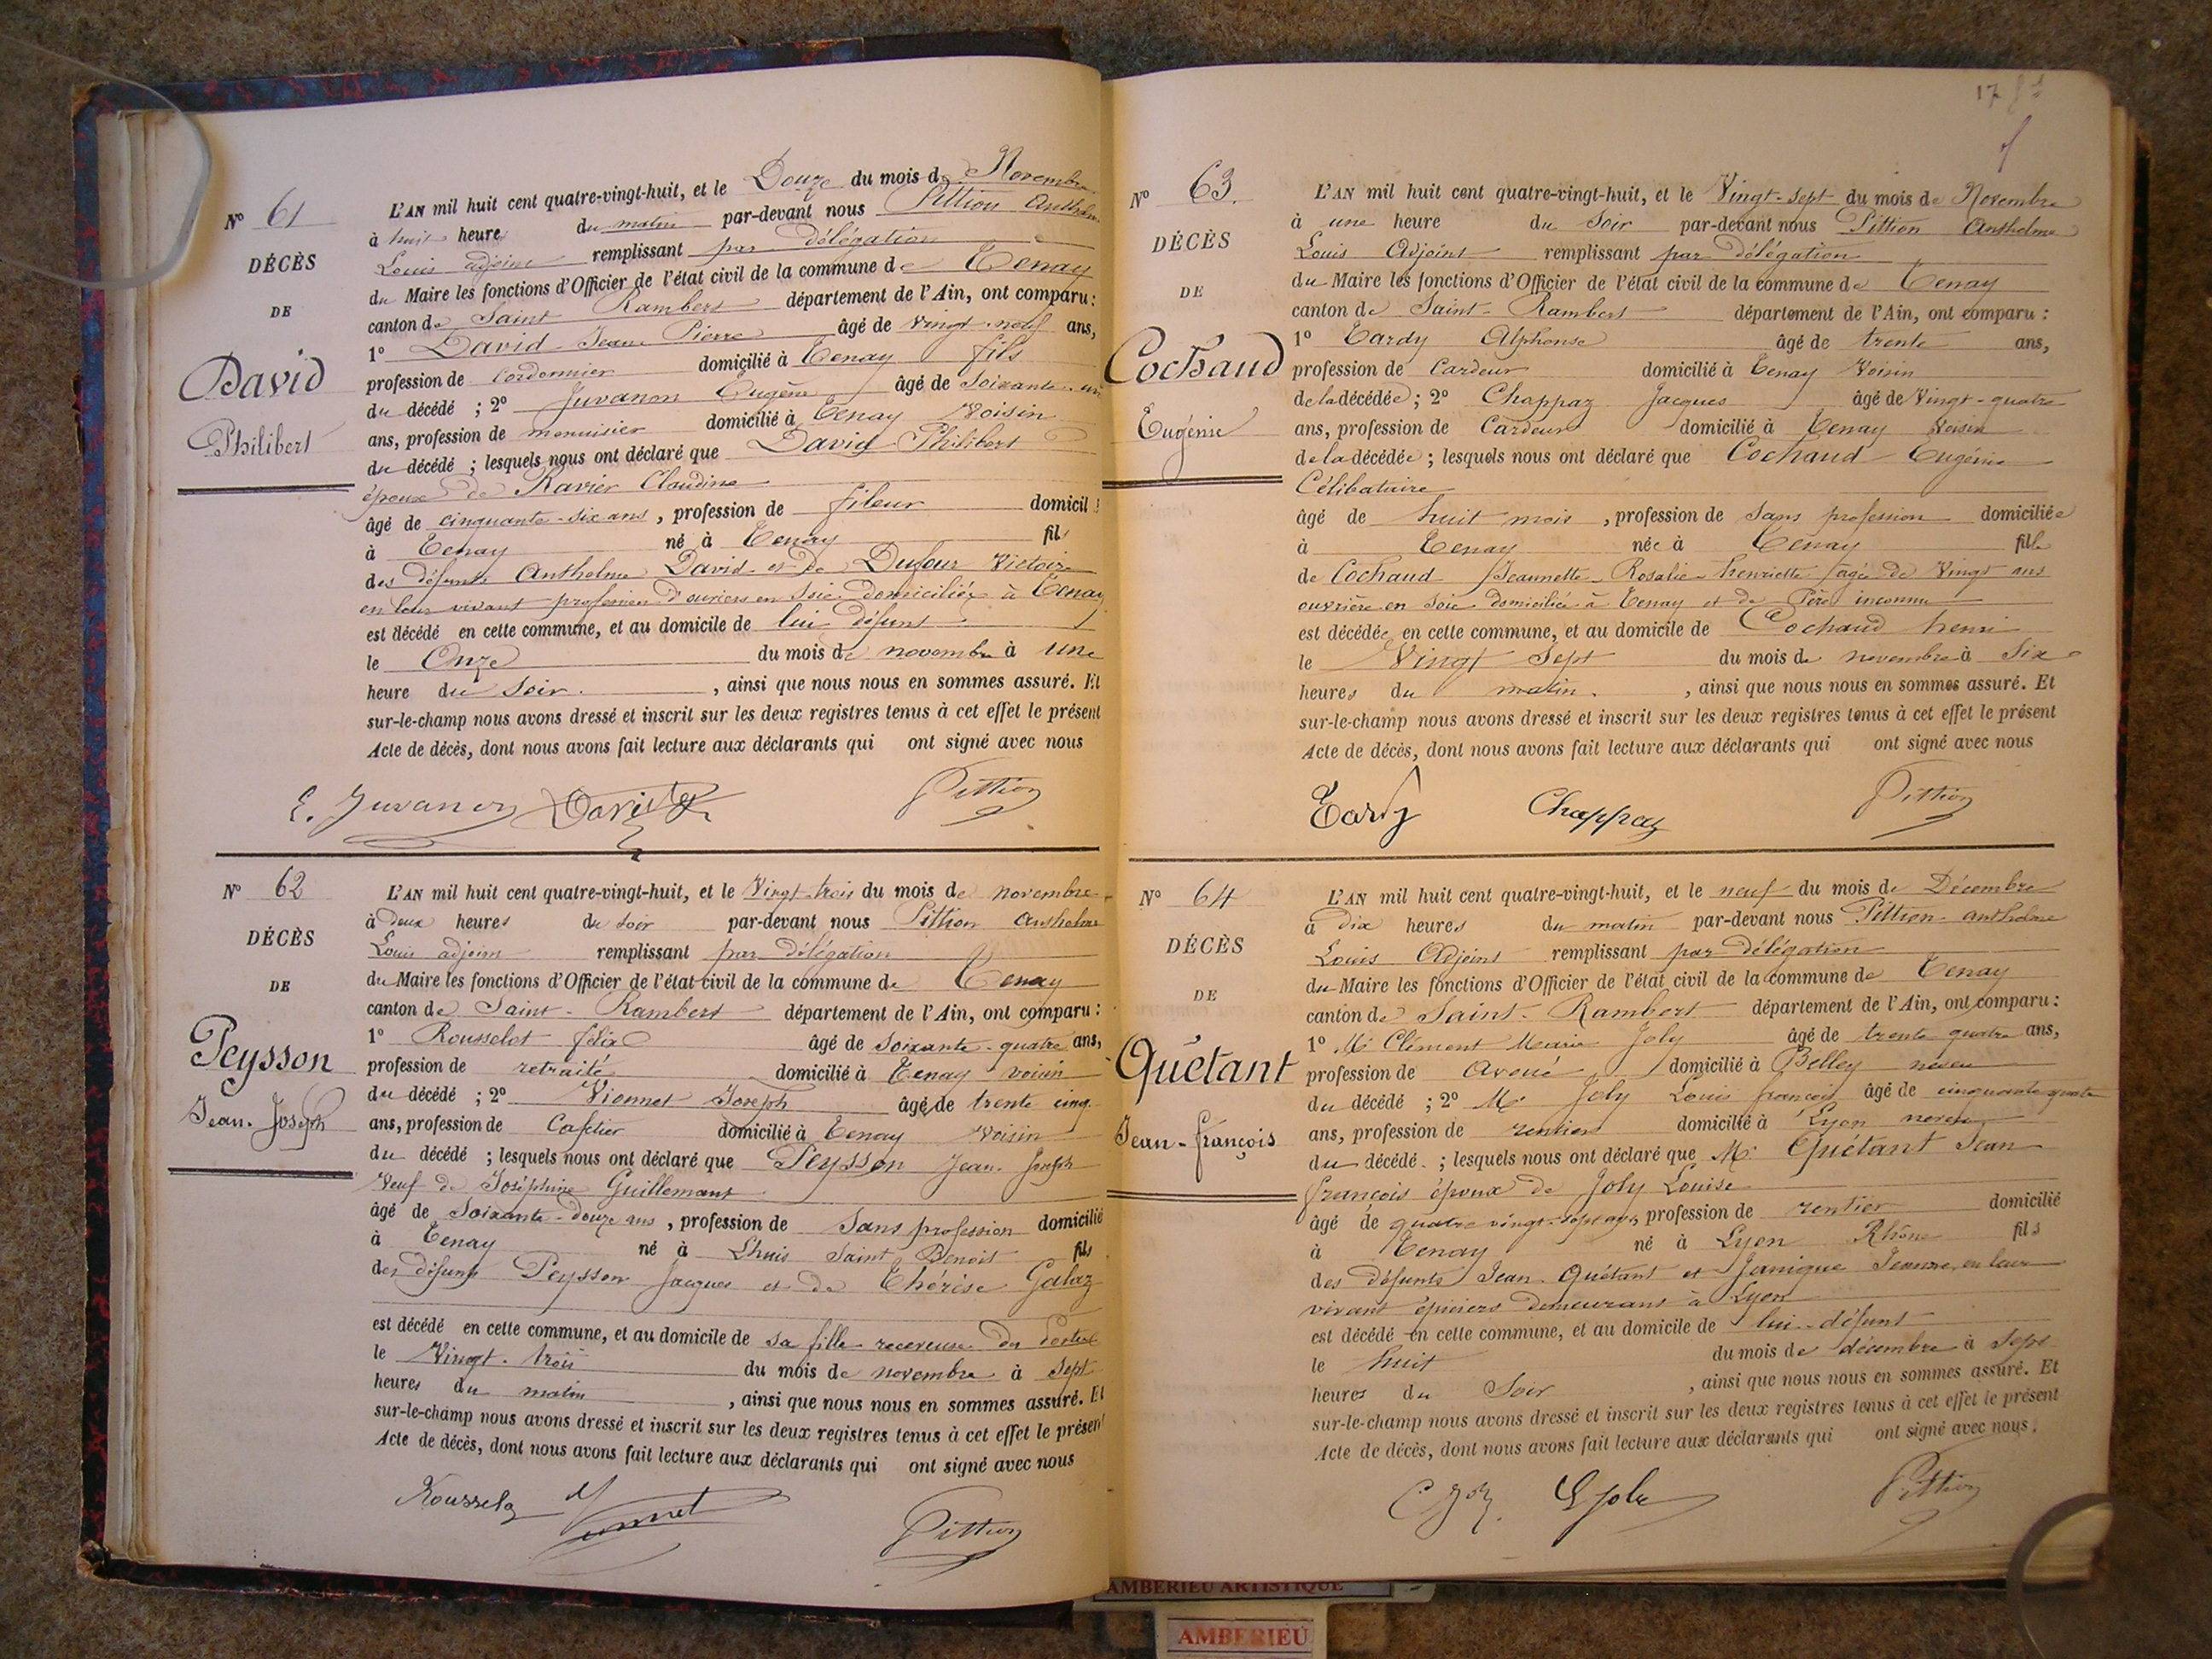 N° 61
DÉCÈS
DE
David
Philibert
L'AN mil huit cent quatre-vingt-huit, et le Douze du mois de Novembre
à huit heures du matin par-devant nous Pittion Anthelme
Louis adjoint remplissant par délégation
du Maire les fonctions d'Officier de l'état civil de la commune de Tenay
canton de Saint Rambert département de l'Ain, ont comparu :
1° David Jean Pierre âgé de vingt-neuf ans,
profession de Cordonnier domicilié à Tenay fils
du décédé ; 2° Juvanon Eugène âgé de Soixante-un
ans, profession de menuisier domicilié à Tenay Voisin
du décédé ; lesquels nous ont déclaré que David Philibert
époux de Ravier Claudine
âgé de cinquante-six ans, profession de fileur domicilié
à Tenay né à Tenay fils
des défunts Anthelme David et de Dufour Victoire
en leur vivant profession d'ouvriers en Soie domiciliés à Tenay
est décédé en cette commune, et au domicile de lui défunt
le Onze du mois de novembre à une
heure du Soir , ainsi que nous nous en sommes assuré. Et
sur-le-champ nous avons dressé et inscrit sur les deux registres tenus à cet effet le présent
Acte de décès, dont nous avons fait lecture aux déclarants qui ont signé avec nous
E. Juvanon David Pittion
N° 62
DÉCÈS
DE
Peysson
Jean-Joseph
L'AN mil huit cent quatre-vingt-huit, et le Vingt-trois du mois de novembre
à deux heures du soir par-devant nous Pittion Anthelme
Louis adjoint remplissant par délégation
du Maire les fonctions d'Officier de l'état civil de la commune de Tenay
canton de Saint-Rambert département de l'Ain, ont comparu :
1° Rousselot félix âgé de Soixante-quatre ans,
profession de retraité domicilié à Tenay voisin
du décédé ; 2° Viennet Joseph âgé de trente cinq
ans, profession de Cafetier domicilié à Tenay Voisin
du décédé ; lesquels nous ont déclaré que Peysson Jean-Joseph
Veuf de Joséphine Guillemant
âgé de Soixante-douze ans, profession de Sans profession domicilié
à Tenay né à Lhuis Saint Benoit fils
des défunts Peysson Jacques et de Thérèse Galaz
est décédé en cette commune, et au domicile de sa fille receveuse des Postes
le Vingt-trois du mois de novembre à Sept
heures du matin , ainsi que nous nous en sommes assuré. Et
sur-le-champ nous avons dressé et inscrit sur les deux registres tenus à cet effet le présent
Acte de décès, dont nous avons fait lecture aux déclarants qui ont signé avec nous
Rousselot Viennet Pittion
17
N° 63.
DÉCÈS
DE
Cochaud
Eugénie
L'AN mil huit cent quatre-vingt-huit, et le Vingt-sept du mois de Novembre
à une heure du Soir par-devant nous Pittion Anthelme
Louis Adjoint remplissant par délégation
du Maire les fonctions d'Officier de l'état civil de la commune de Tenay
canton de Saint-Rambert département de l'Ain, ont comparu :
1° Tardy Alphonse âgé de trente ans,
profession de Cardeur domicilié à Tenay Voisin
de la décédée ; 2° Chappaz Jacques âgé de Vingt-quatre
ans, profession de Cardeur domicilié à Tenay Voisin
de la décédée ; lesquels nous ont déclaré que Cochaud Eugénie
Célibataire
âgé de huit mois , profession de Sans profession domiciliée
à Tenay née à Tenay fille
de Cochaud Jeannette-Rosalie-henriette âgée de Vingt ans
ouvrière en Soie domiciliée à Tenay et de Père inconnu
est décédée en cette commune, et au domicile de Cochaud henri
le Vingt Sept du mois de novembre à Six
heures du matin. , ainsi que nous nous en sommes assuré. Et
sur-le-champ nous avons dressé et inscrit sur les deux registres tenus à cet effet le présent
Acte de décès, dont nous avons fait lecture aux déclarants qui ont signé avec nous
Tardy Chappaz Pittion
N° 64
DÉCÈS
DE
Quétant
Jean-François
L'AN mil huit cent quatre-vingt-huit, et le neuf du mois de Décembre
à dix heures du matin par-devant nous Pittion-anthelme
Louis Adjoint remplissant par délégation
du Maire les fonctions d'Officier de l'état civil de la commune de Tenay
canton de Saint-Rambert département de l'Ain, ont comparu :
1° Mr Clément Marie Joly âgé de trente quatre ans,
profession de Avoué domicilié à Belley neveu
du décédé ; 2° Mr Joly Louis françois âgé de cinquante quatre
ans, profession de rentier domicilié à Lyon neveu
du décédé. ; lesquels nous ont déclaré que Mr Quétant Jean
françois époux de Joly Louise
âgé de quatre vingt-sept ans, profession de rentier domicilié
à Tenay né à Lyon Rhône fils
des défunts Jean Quétant et Janique Jeanne, en leur
vivant épiciers demeurant à Lyon
est décédé en cette commune, et au domicile de lui-défunt
le huit du mois de décembre à Sept
heures du Soir , ainsi que nous nous en sommes assuré. Et
sur-le-champ nous avons dressé et inscrit sur les deux registres tenus à cet effet le présent
Acte de décès, dont nous avons fait lecture aux déclarants qui ont signé avec nous.
C Joly L Joly Pittion
AMBERIEU ARTISTIQUE
AMBERIEU